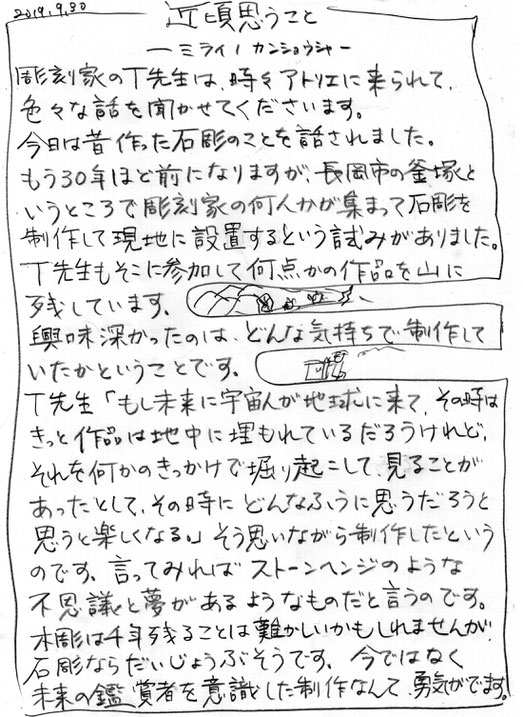 2019.9.30
近頃思うこと
ーミライノカンショウシャー
彫刻家のT先生は、時々アトリエに来られて、
色々な話を聞かせてくださいます。
今日は昔作った石彫のことを話されました。
もう30年ほど前になりますが、長岡市の釜塚と
いうところで彫刻家の何人かが集まって石彫を
制作して現地に設置するという試みがありました。
T先生もそこに参加して何点かの作品を山に
残しています。
興味深かったのは、どんな気持ちで制作して
いたかということです。
T先生「もし未来に宇宙人が地球に来て、その時は
きっと作品は地中に埋もれているだろうけれど、
それを何かのきっかけで堀り起こして、見ることが
あったとして、その時にどんなふうに思うだろうと
思うと楽しくなる。」そう思いながら制作したという
のです。言ってみればストーンヘンジのような
不思議と夢があるようなものだと言うのです。
木彫は千年残ることは難かしいかもしれませんが
石彫ならだいじょうぶそうです。今ではなく
未来の鑑賞者を意識した制作なんて、勇気がでます。